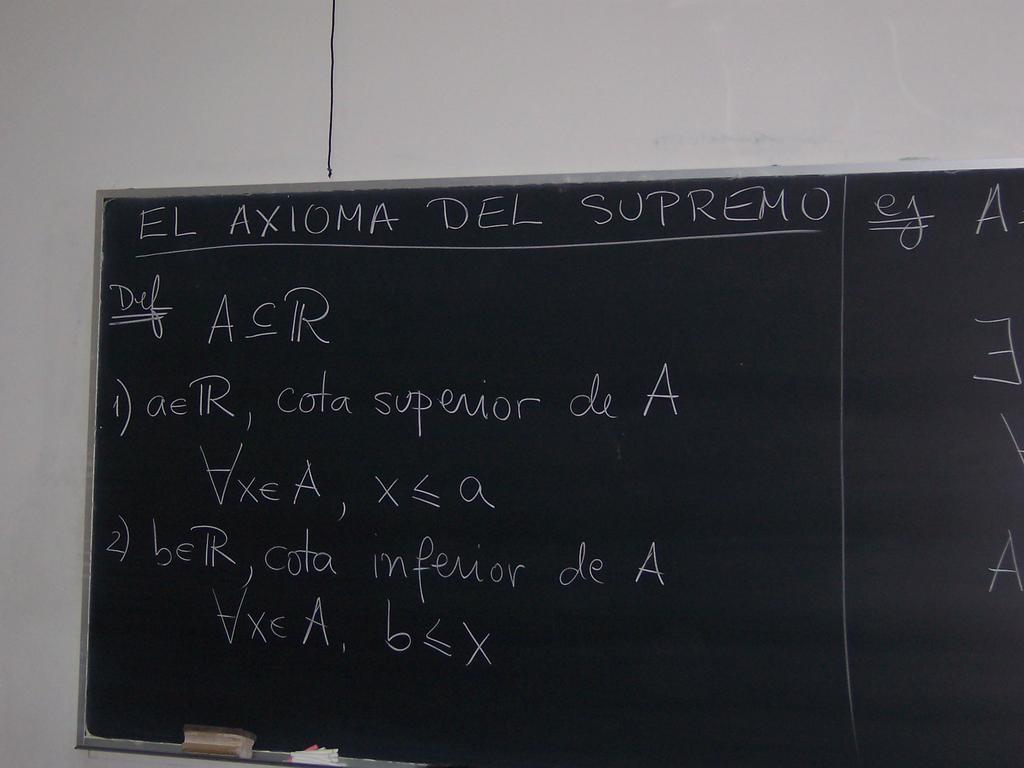 EL AXIOMA DEL SUPREMO
Def A ⊆ ℝ
1) a∈ℝ, cota superior de A
∀x∈A, x ≤ a
2) b∈ℝ, cota inferior de A
∀x∈A, b ≤ x
ej A
∃
A